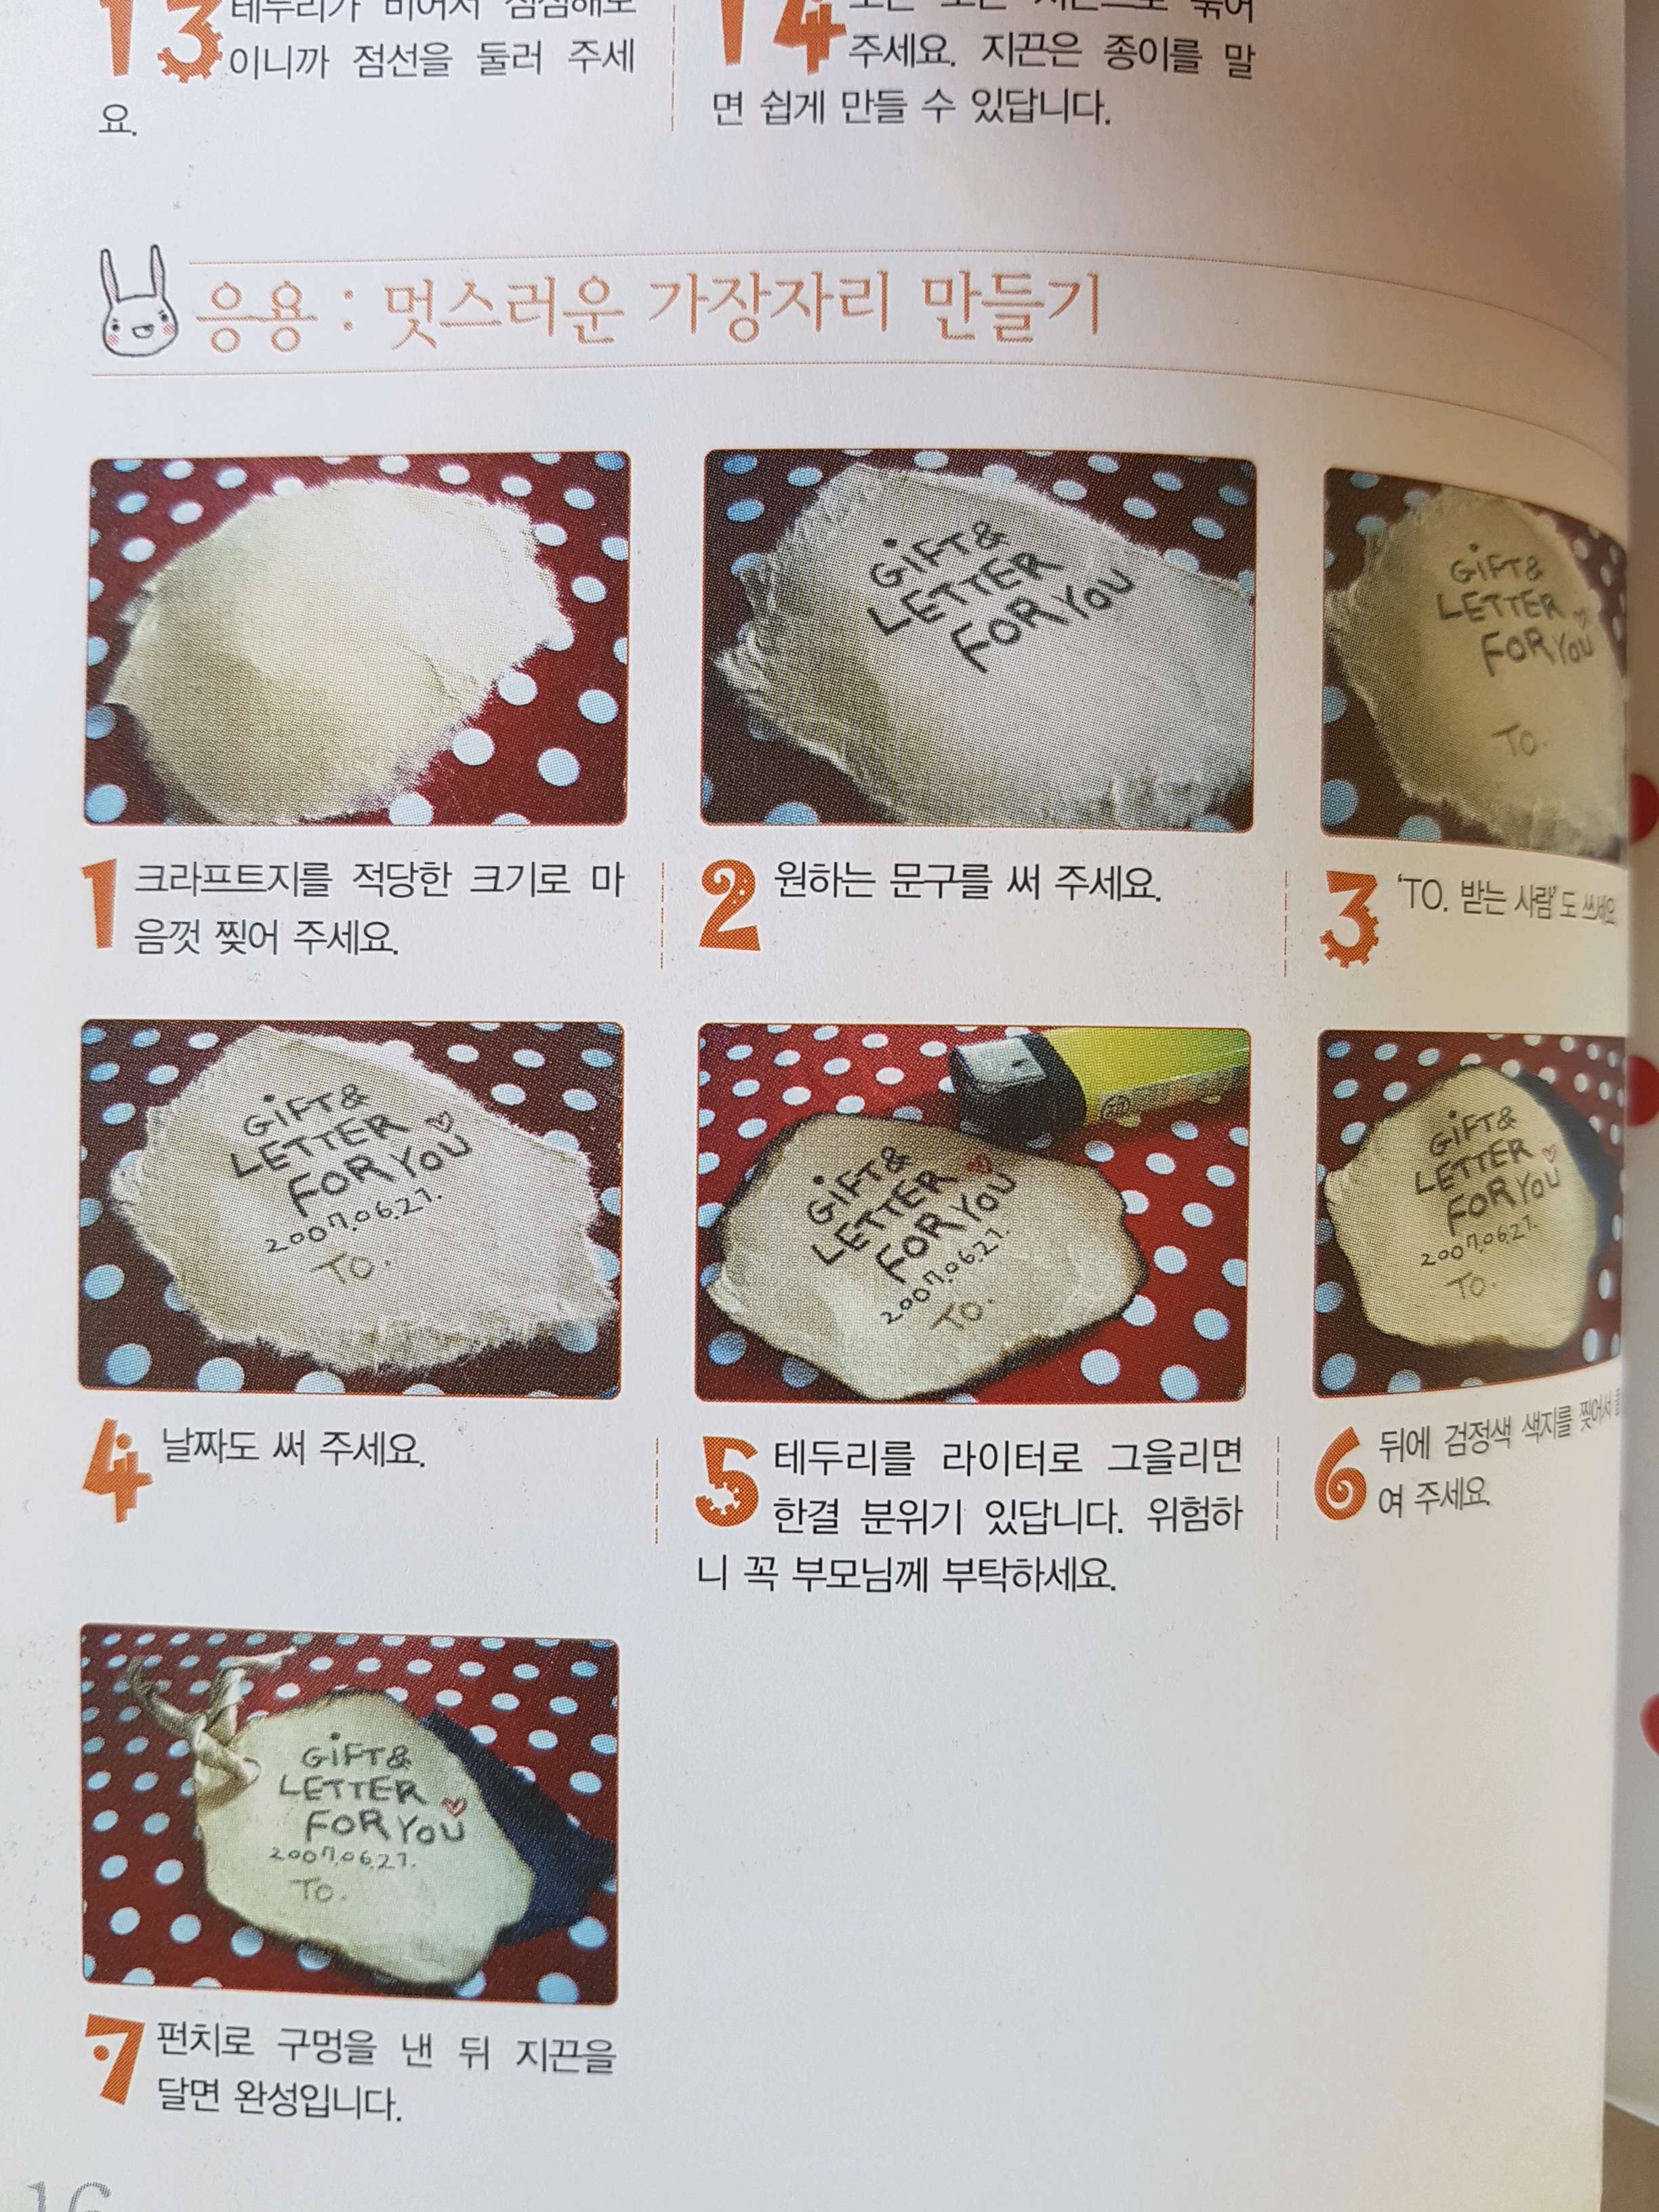 13 테두리가 비어서 심심해보
이니까 점선을 둘러 주세
요.
14
주세요. 지끈은 종이를 말
면 쉽게 만들 수 있답니다.
응용 : 멋스러운 가장자리 만들기
GiFT&
LETTER
FOR YOU
GiFT&
LETTER
FOR YOU
TO.
1 크라프트지를 적당한 크기로 마
음껏 찢어 주세요.
2 원하는 문구를 써 주세요.
3 'TO. 받는 사람'도 쓰세요.
GiFT&
LETTER
FOR YOU
2007.06.27.
TO.
GiFT&
LETTER
FOR YOU
2007.06.27.
TO.
GiFT&
LETTER
FOR YOU
2007.06.27.
TO.
4 날짜도 써 주세요.
5 테두리를 라이터로 그을리면
한결 분위기 있답니다. 위험하
니 꼭 부모님께 부탁하세요.
6 뒤에 검정색 색지를 찢어서
여 주세요.
GiFT&
LETTER
FOR YOU
2007.06.27.
TO.
7 펀치로 구멍을 낸 뒤 지끈을
달면 완성입니다.
16